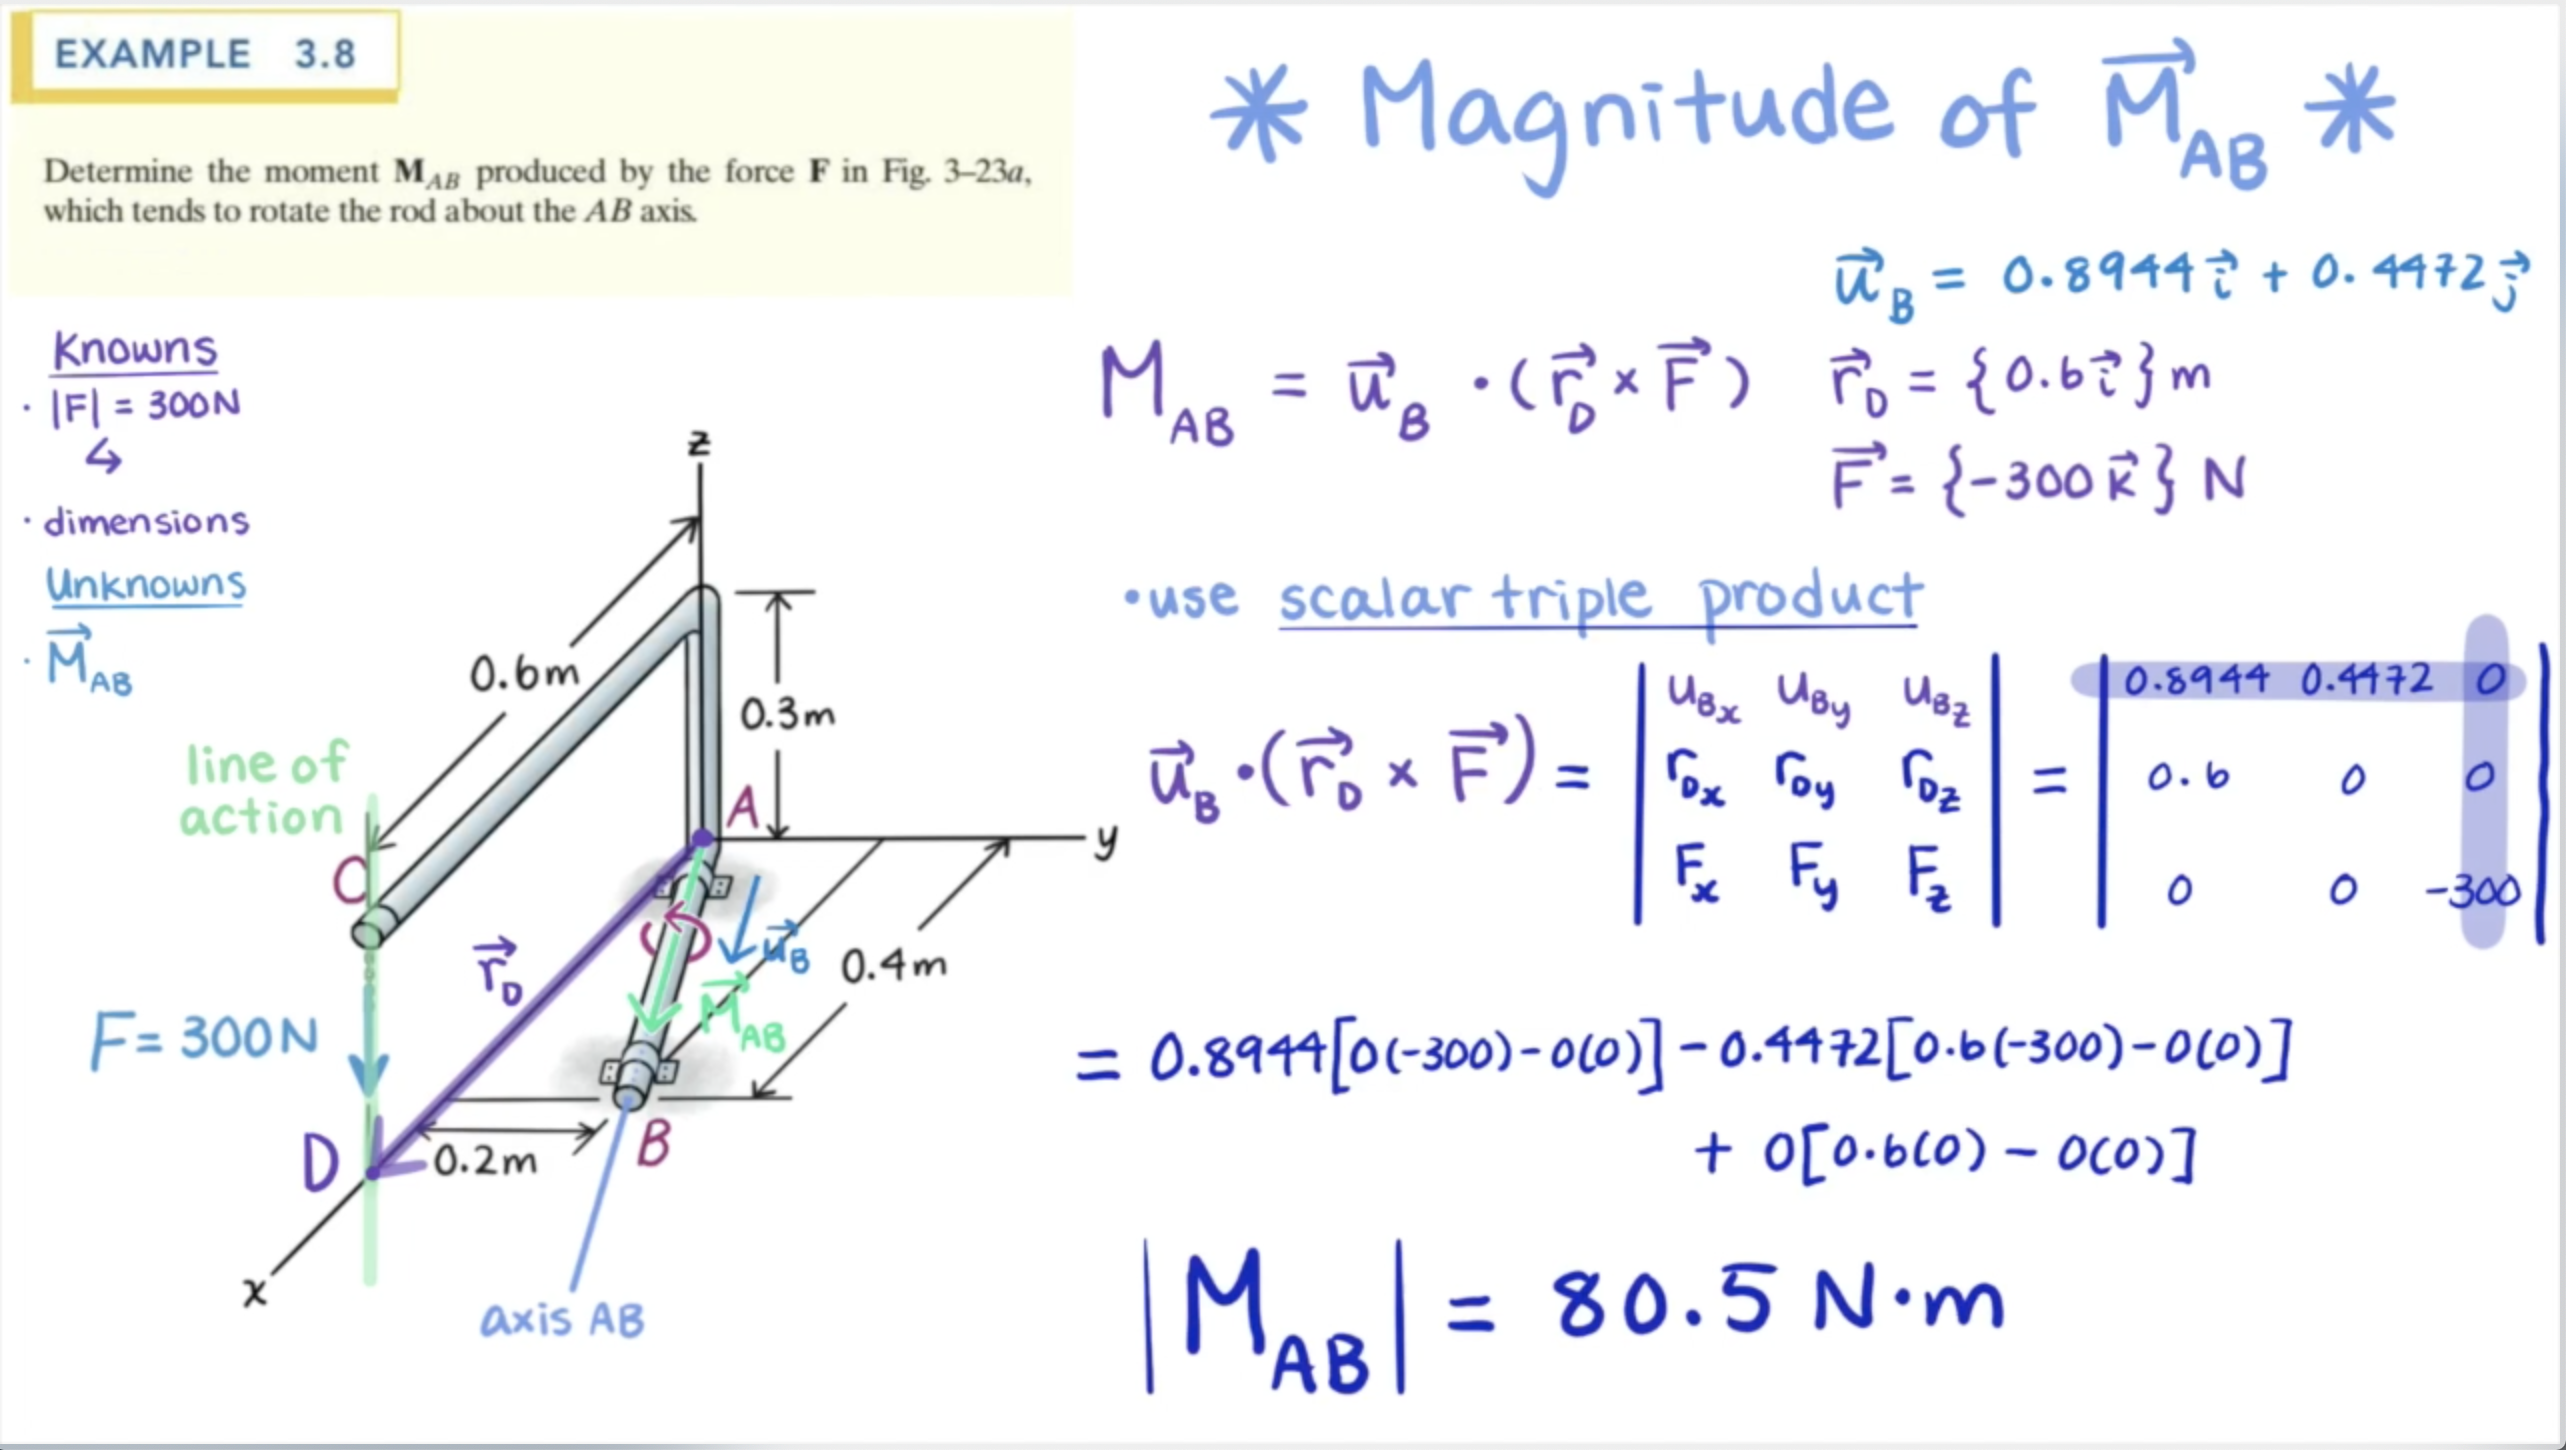 EXAMPLE 3.8
Determine the moment M_AB produced by the force F in Fig. 3–23a,
which tends to rotate the rod about the AB axis.
Knowns
· |F| = 300N
↳
· dimensions
Unknowns
· M⃗_AB
z
0.6m
0.3m
line of
action
A
C
y
r⃗_D
u⃗_B
0.4m
M⃗_AB
F = 300N
D
0.2m
B
x
axis AB
* Magnitude of M⃗_AB *
u⃗_B = 0.8944 i⃗ + 0.4472 j⃗
M_AB = u⃗_B · (r⃗_D × F⃗) r⃗_D = {0.6 i⃗} m
F⃗ = {-300 k⃗} N
· use scalar triple product
u_Bx u_By u_Bz 0.8944 0.4472 0
u⃗_B · (r⃗_D × F⃗) = | r_Dx r_Dy r_Dz | = | 0.6 0 0 |
F_x F_y F_z 0 0 -300
= 0.8944[0(-300) - 0(0)] - 0.4472[0.6(-300) - 0(0)]
+ 0[0.6(0) - 0(0)]
|M_AB| = 80.5 N·m